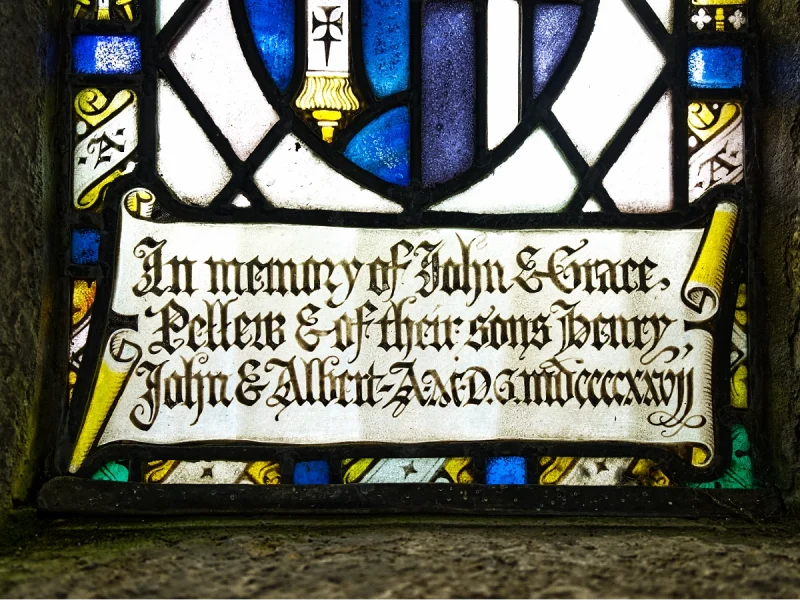 A A
In memory of John & Grace,
Pellew & of their sons Henry,
John & Albert-A.M.D.G. mdccccxxvij